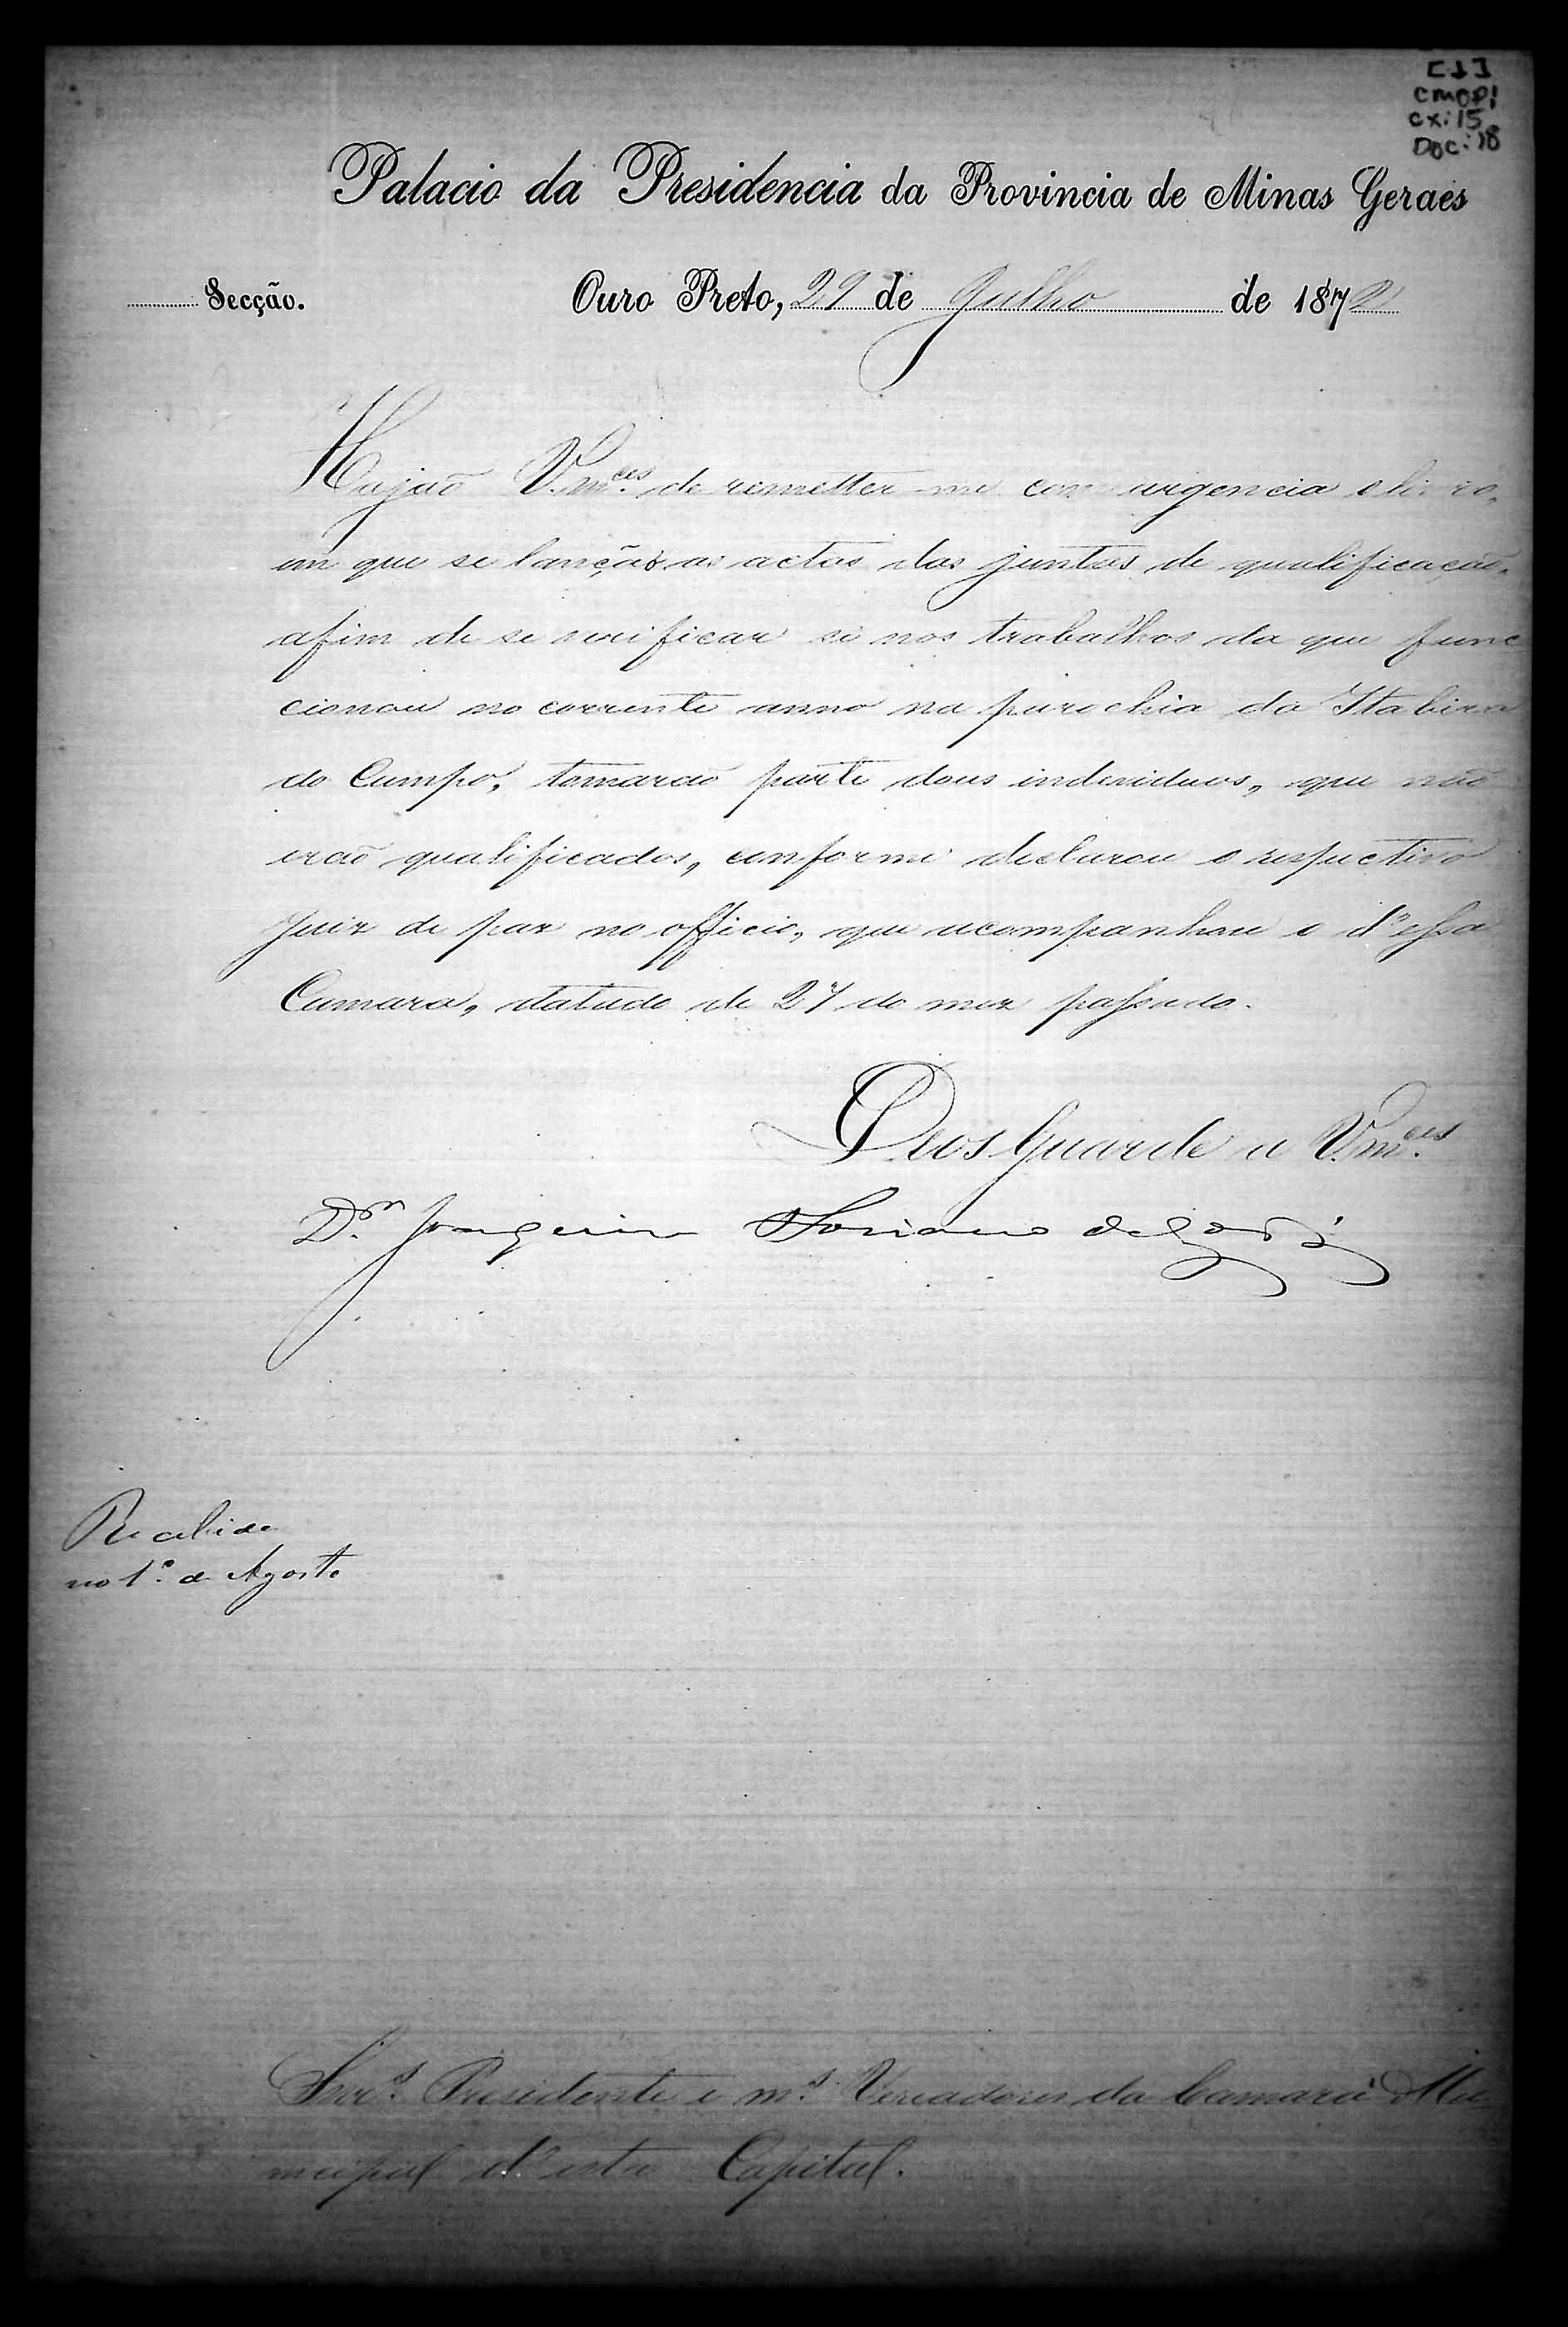 [1]
CMOP!
cx:15
Doc:18
Palacio da Presidencia da Provincia de Minas Geraes
Secção.
Ouro Preto, 29 de Julho de 1872
Hajão V.m.ces de remetter-me com urgencia o livro,
em que se lanção as actas das juntas de qualificação,
afim de se verificar si nos trabalhos da que func
cionou no corrente anno na parochia da Itabira
do Campo, tomarão parte dous individuos, que não
erão qualificados, conforme declarou o respectivo
Juiz de paz no officio, que acompanhou o d'essa
Camara, datado de 27 do mez passado.
Deos Guarde a V.m.ces
D.or Joaquim Floriano de Godoi
Recebido
no 1.º de Agosto
Snr.s Presidente e m.s Vereadores da Camara Mu
nicipal d'esta Capital.